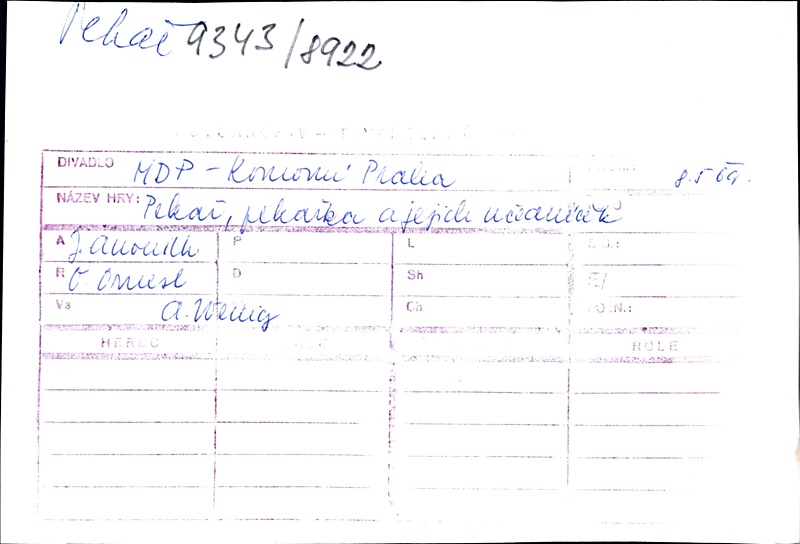 Pekař 9343/8922
DIVADLO MDP - Komorní Praha 8.5.69.
NÁZEV HRY: Pekař, pekařka a jejich učedníček
A J. Anouilh P L
R O. Ornest D Sh
Vs A. Wenig Ch
HEREC ROLE